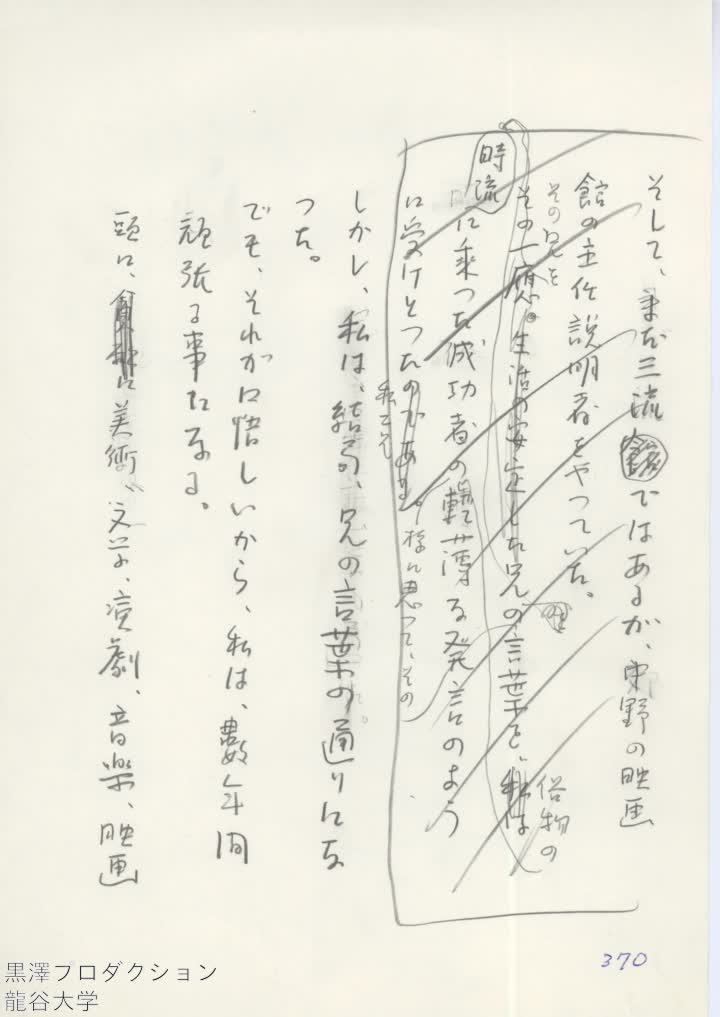 そして、まだ三流館ではあるが、中野の映画
館の主任説明者をやつていた。
その兄を
その一應。生活の安定した兄の言葉を、私は
俗物の
時流
に乗つた成功者の軽薄な発言のよう
に受けとつたのである。
私こそ
様に思つて、その
しかし、私は、結局、兄の言葉の通りにな
つた。
でも、それが口惜しいから、私は、數年間
頑張る事になる。
頭に、貪欲に美術、文学、演劇、音楽、映画
370
黒澤プロダクション
龍谷大学